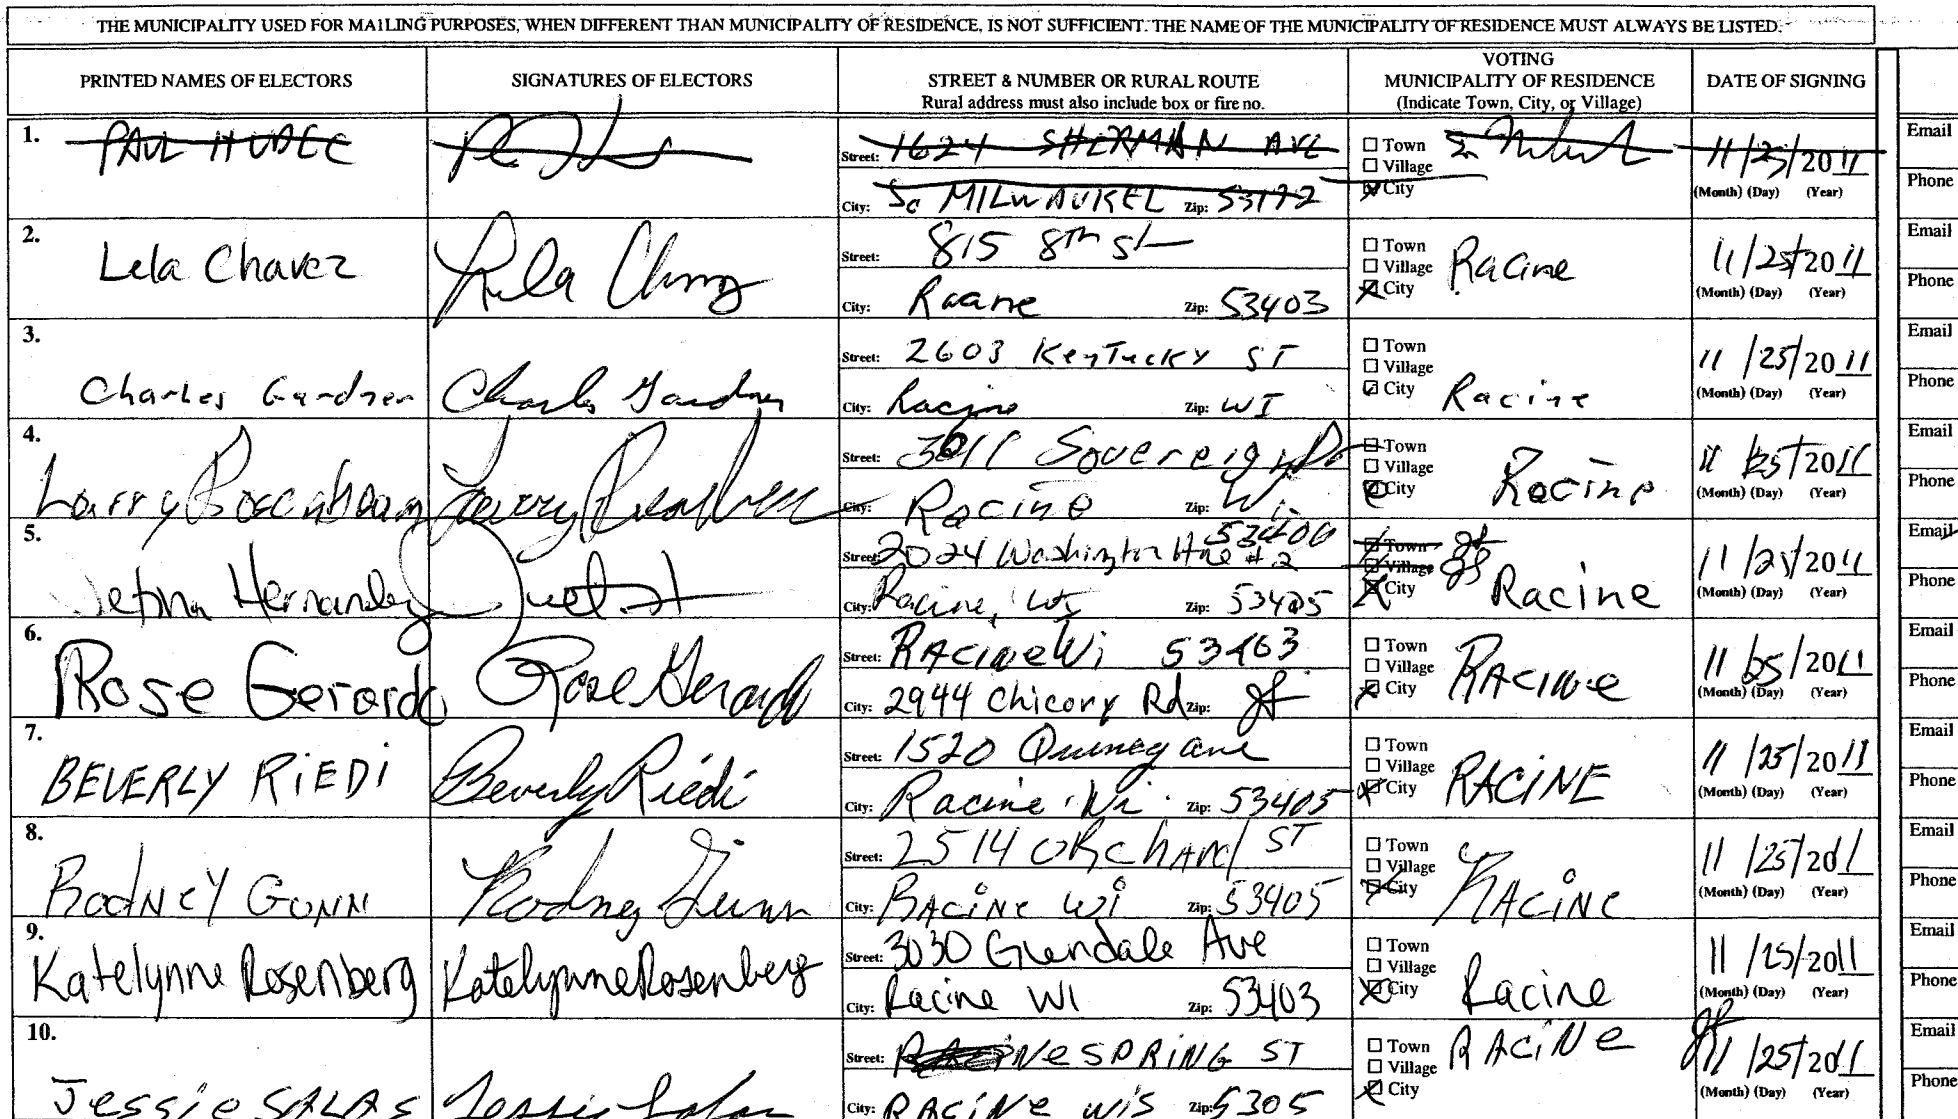 THE MUNICIPALITY USED FOR MAILING PURPOSES, WHEN DIFFERENT THAN MUNICIPALITY OF RESIDENCE, IS NOT SUFFICIENT. THE NAME OF THE MUNICIPALITY OF RESIDENCE MUST ALWAYS BE LISTED.
PRINTED NAMES OF ELECTORS
SIGNATURES OF ELECTORS
STREET & NUMBER OR RURAL ROUTE
Rural address must also include box or fire no.
VOTING
MUNICIPALITY OF RESIDENCE
(Indicate Town, City, or Village)
DATE OF SIGNING
1.
PAUL
Street: 1624 SHERMAN AVE
City: So MILWAUKEE Zip: 53172
Town
Village
City
11/25/2011
(Month) (Day) (Year)
Email
Phone
2.
Lela Chavez
Lela
Street: 815 8th St
City: Racine Zip: 53403
Town
Village
City
Racine
11/25/2011
(Month) (Day) (Year)
Email
Phone
3.
Charles Gardner
Charles Gardner
Street: 2603 KenTucky ST
City: Racine Zip: WI
Town
Village
City
Racine
11/25/2011
(Month) (Day) (Year)
Email
Phone
4.
Larry
Larry
Street: 3011 Sovereign Dr
City: Racine Zip: Wi
53406
Town
Village
City
Racine
11/25/2011
(Month) (Day) (Year)
Email
Phone
5.
Hernandez
Street: 2024 Washington Ave #2
City: Racine, Wi Zip: 53405
Town
Village
City
Racine
11/25/2011
(Month) (Day) (Year)
Email
Phone
6.
Rose Gerardo
Rose Gerardo
Street: RAcine Wi 53403
City: 2944 Chicory Rd Zip:
Town
Village
City
RAcine
11/25/2011
(Month) (Day) (Year)
Email
Phone
7.
BEVERLY RiEDi
Beverly Riedi
Street: 1520
City: Racine Wi. Zip: 53405
Town
Village
City
RACINE
11/25/2011
(Month) (Day) (Year)
Email
Phone
8.
RodNEY GUNN
Rodney Gunn
Street: 2514 ORchARd ST
City: RAciNe wi Zip: 53405
Town
Village
City
RAciNe
11/25/2011
(Month) (Day) (Year)
Email
Phone
9.
Katelynne Rosenberg
Katelynne Rosenberg
Street: 3030 Glendale Ave
City: Racine WI Zip: 53403
Town
Village
City
Racine
11/25/2011
(Month) (Day) (Year)
Email
Phone
10.
Jessie SALAS
Jessie Salas
Street: SPRiNG ST
City: RACiNe wis Zip: 5305
Town
Village
City
RACiNe
11/25/2011
(Month) (Day) (Year)
Email
Phone